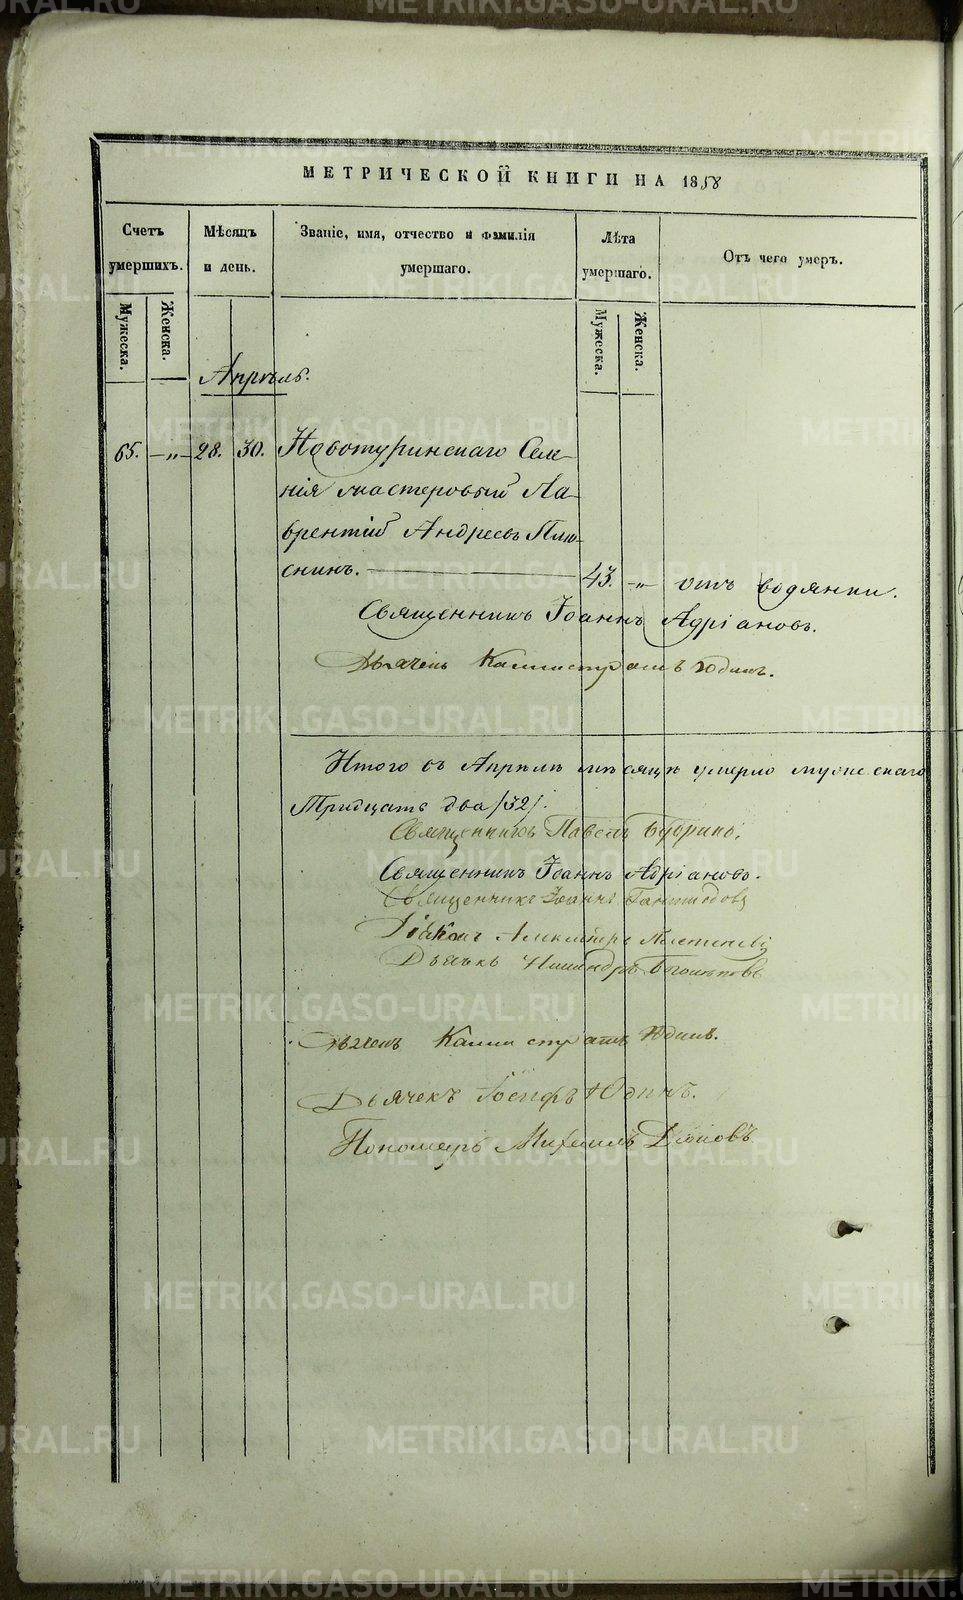 МЕТРИЧЕСКОЙ КНИГИ НА 1858
Счетъ умершихъ.
Мѣсяцъ и день.
Званіе, имя, отчество и фамилія умершаго.
Лѣта умершаго.
Отъ чего умеръ.
Мужеска.
Женска.
Мужеска.
Женска.
Апрѣль.
65. — „ — 28. 30. Новотуринскаго Селе-
нія мастеровый Ла-
врентій Андреевъ Плю-
снинъ. — 43. — „ отъ водянки.
Священникъ Іоаннъ Адріановъ.
Дьячекъ Каллистратъ Юдинъ.
Итого въ Апрѣлѣ мѣсяцѣ умерло мужескаго
Тридцать два /32/.
Священникъ Павелъ
Священникъ Іоаннъ Адріановъ.
Священникъ Іоаннъ
Діаконъ Александръ
Дьячекъ
Дьячекъ Каллистратъ Юдинъ.
Дьячекъ Іосифъ Юдинъ.
Пономарь Михаилъ
METRIKI.GASO-URAL.RU